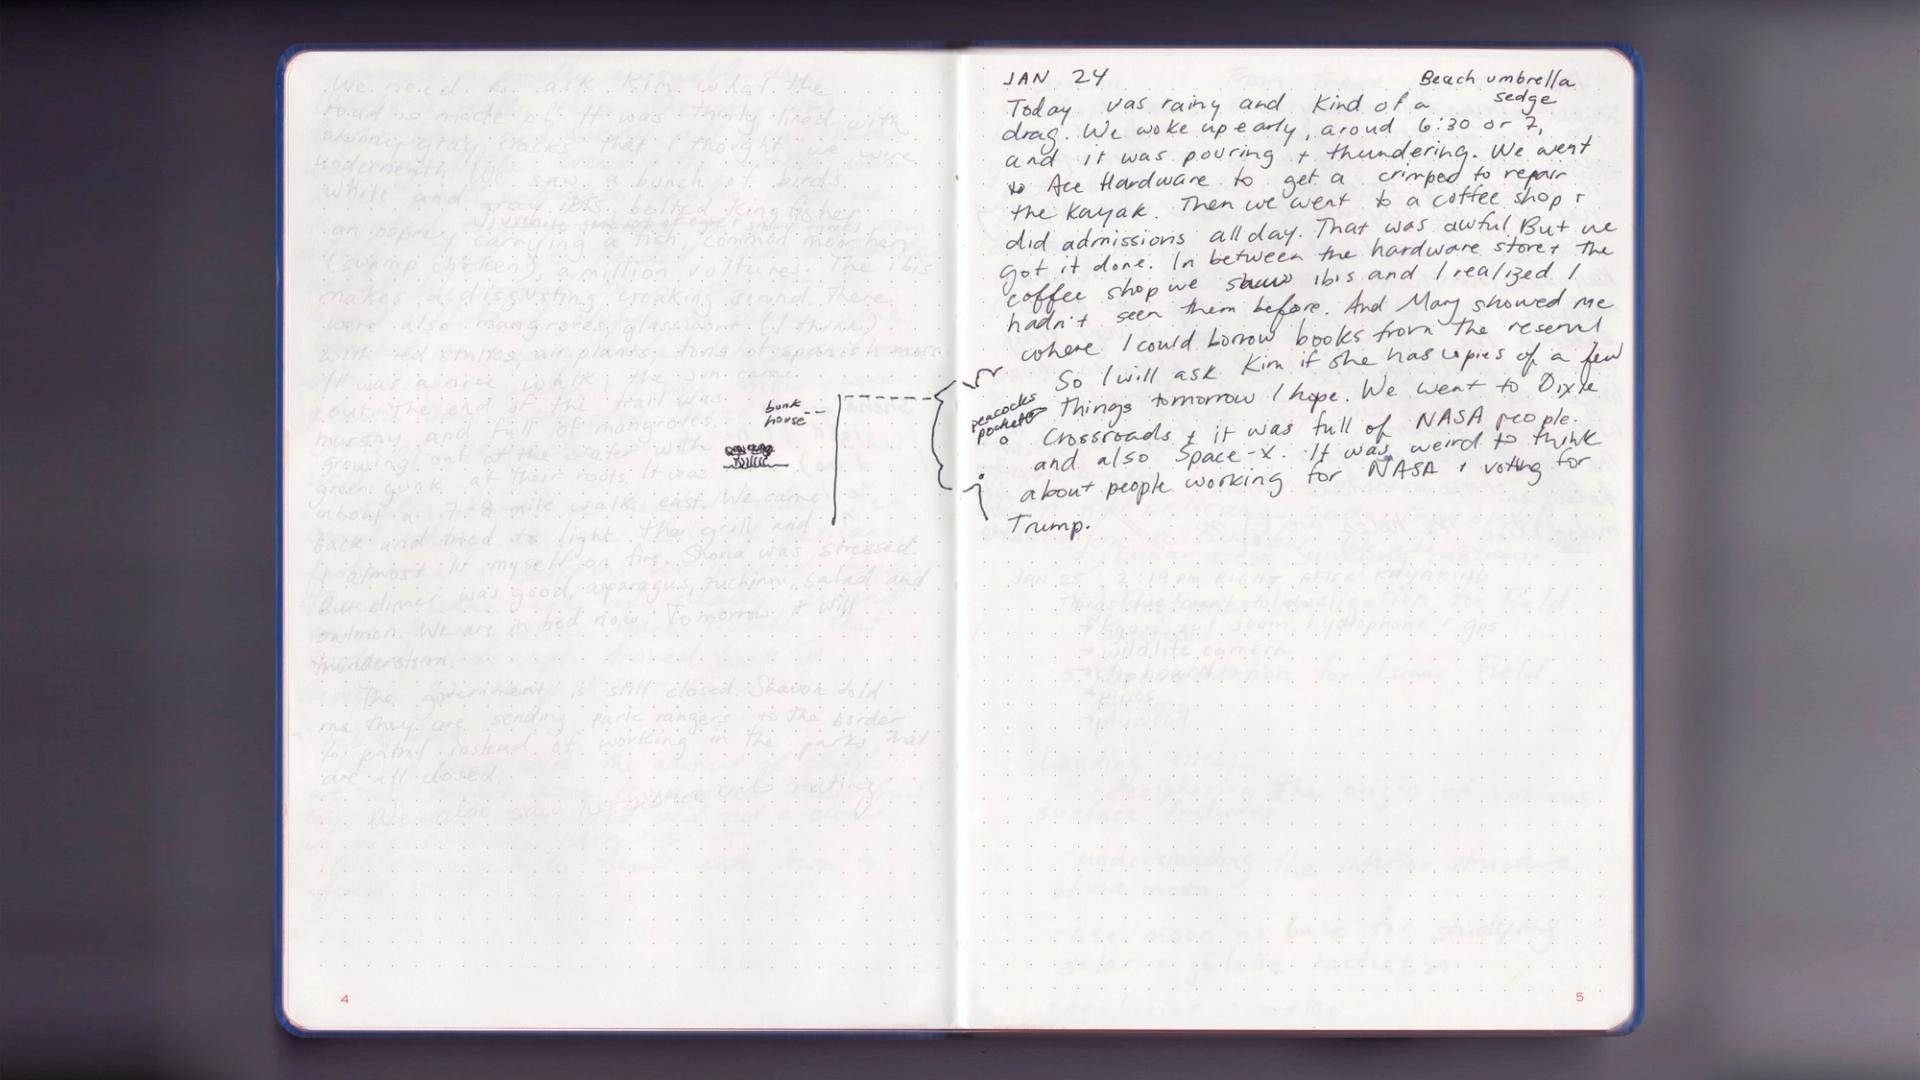 We need to ask Kim what the
road is made of. It was thinly lined with
skinny gray cracks that I thought we were
underneath. We saw a bunch of birds.
White and gray ibis, belted kingfisher
an osprey carrying a fish, common moorhen
(swamp chicken), a million vultures. The ibis
makes a disgusting croaking sound. There
were also mangroves, glasswort (I think)
with red, air plants, tons of spanish moss.
It was a nice walk; the sun came
out. The end of the trail was
marshy and full of mangroves
growing out of the water with
green gunk at their roots. It was
about a 7-8 mile walk east. We came
back and tried to light the grill and
I almost lit myself on fire. Shona was stressed.
But dinner was good, asparagus, zucchini, salad and
salmon. We are in bed now. Tomorrow it will
thunderstorm.
The government is still closed. told
me they are sending park rangers to the border
to patrol instead of working in the parks that
are all closed
We also saw
bunk
house
4
JAN 24
Beach umbrella
sedge
Today was rainy and Kind of a
drag. We woke up early, aroud 6:30 or 7,
and it was pouring + thundering. We went
to Ace Hardware to get a crimped to repair
the Kayak. Then we went to a coffee shop +
did admissions all day. That was awful But we
got it done. In between the hardware store + the
coffee shop we saw ibis and I realized I
hadn't seen them before. And Mary showed me
where I could borrow books from the reserve
So I will ask Kim if she has copies of a few
things tomorrow I hope. We went to Dixie
Crossroads + it was full of NASA people.
and also Space-X. It was weird to think
about people working for NASA + voting for
Trump.
peacocks
pocket
JAN 25 2:19 PM RIGHT AFTER KAYAKING
zoom, hydrophone + gps
→ wildlife camera
for Lunar Field
Landing sites:
deciphering the origin of
surface features
understanding the interior structure
of the moon
moon as base for studying
solar radiation
5